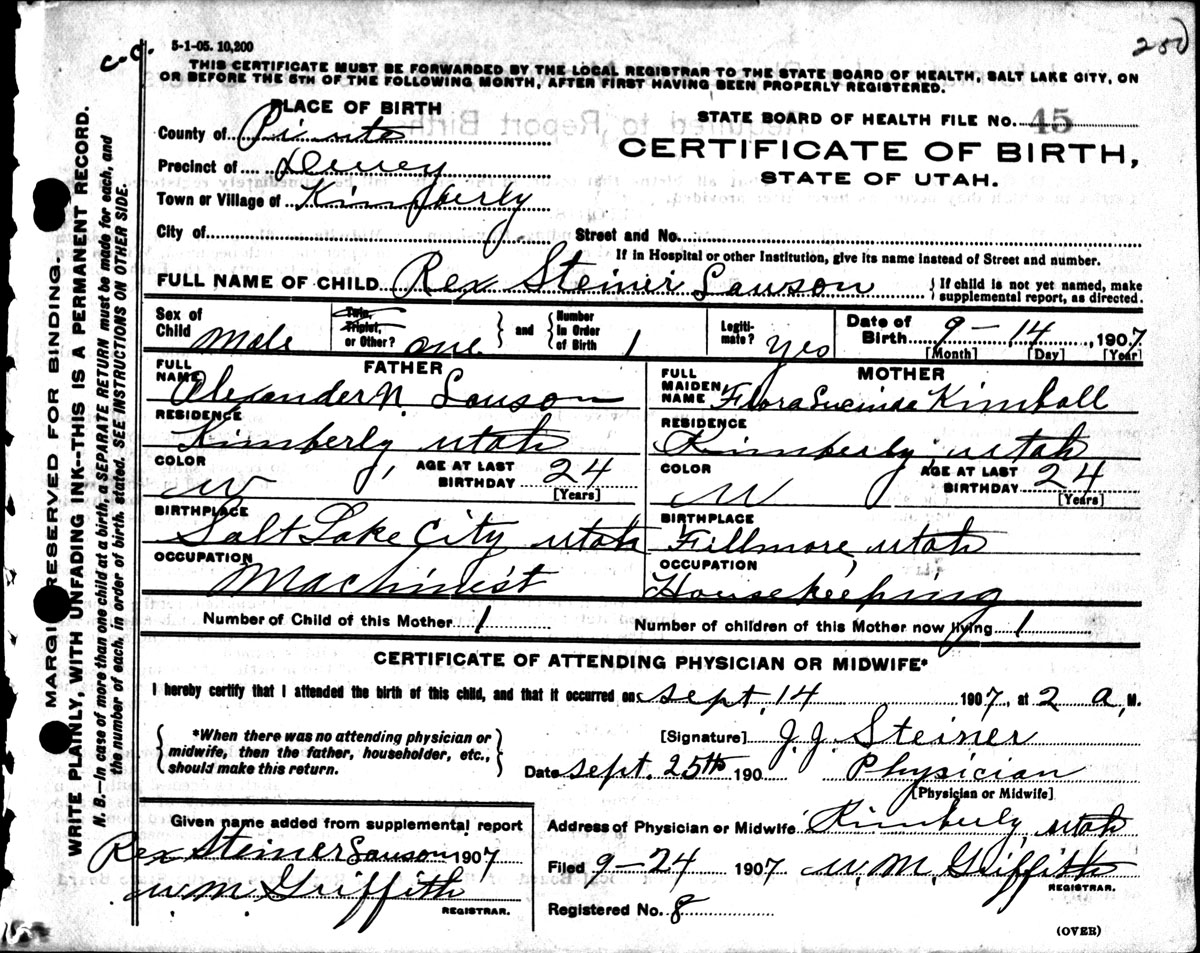 5-1-05. 10,200
c.o.
250
THIS CERTIFICATE MUST BE FORWARDED BY THE LOCAL REGISTRAR TO THE STATE BOARD OF HEALTH, SALT LAKE CITY, ON
OR BEFORE THE 5TH OF THE FOLLOWING MONTH, AFTER FIRST HAVING BEEN PROPERLY REGISTERED.
PLACE OF BIRTH
County of Piute
Precinct of Dewey
Town or Village of Kimberly
STATE BOARD OF HEALTH FILE NO. 45
CERTIFICATE OF BIRTH,
STATE OF UTAH.
City of Street and No.
If in Hospital or other Institution, give its name instead of Street and number.
FULL NAME OF CHILD Rex Steiner Lawson {If child is not yet named, make supplemental report, as directed.
Sex of Child Male Twin, Triplet, or Other? one } and { Number in Order of Birth 1 Legitimate? yes Date of Birth 9-14, 1907
[Month] [Day] [Year]
FATHER
FULL NAME Alexander N. Lawson
RESIDENCE
Kimberly, Utah
COLOR W AGE AT LAST BIRTHDAY 24
[Years]
BIRTHPLACE
Salt Lake City Utah
OCCUPATION
Machinist
MOTHER
FULL MAIDEN NAME Flora Lucinda Kimball
RESIDENCE
Kimberly, Utah
COLOR W AGE AT LAST BIRTHDAY 24
[Years]
BIRTHPLACE
Fillmore, Utah
OCCUPATION
Housekeeping
Number of Child of this Mother 1 Number of children of this Mother now living 1
CERTIFICATE OF ATTENDING PHYSICIAN OR MIDWIFE*
I hereby certify that I attended the birth of this child, and that it occurred on Sept. 14 1907, at 2 a, M.
{ *When there was no attending physician or
midwife, then the father, householder, etc.,
should make this return. }
[Signature] J. J. Steiner
Date Sept. 25th 190 Physician
[Physician or Midwife]
Given name added from supplemental report
Rex Steiner Lawson 1907
W. M. Griffith
REGISTRAR.
Address of Physician or Midwife Kimberly, Utah
Filed 9-24 1907 W. M. Griffith
REGISTRAR.
Registered No. 8
(OVER)
MARGIN RESERVED FOR BINDING.
WRITE PLAINLY, WITH UNFADING INK--THIS IS A PERMANENT RECORD.
N. B.—In case of more than one child at a birth, a SEPARATE RETURN must be made for each, and
the number of each, in order of birth, stated. SEE INSTRUCTIONS ON OTHER SIDE.